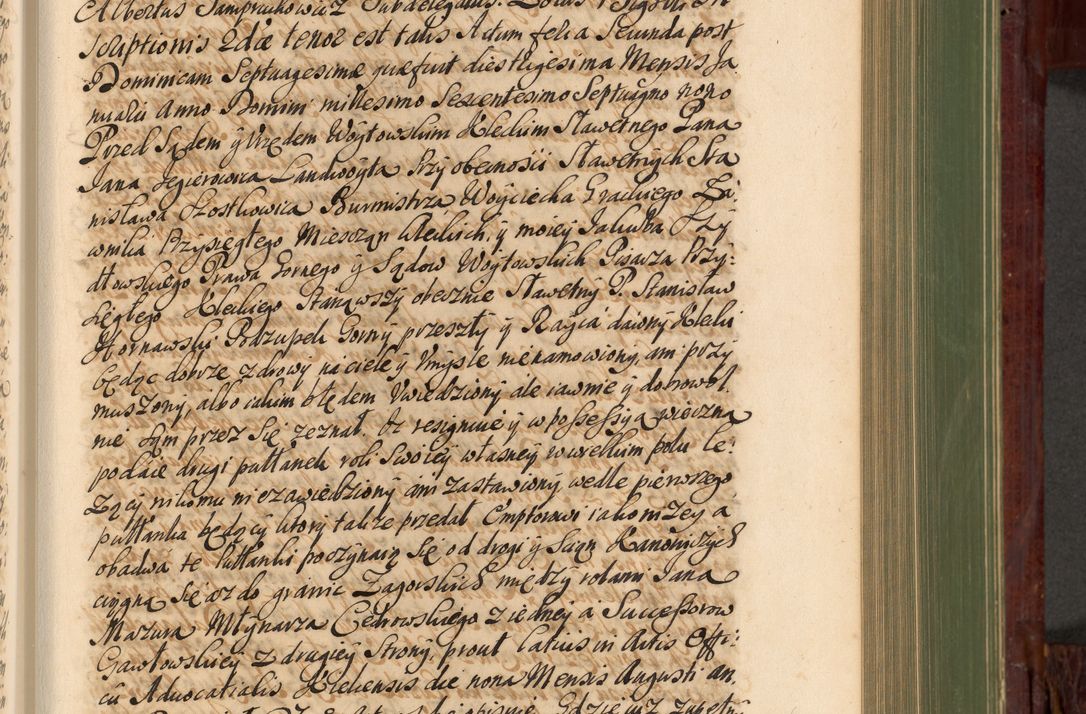 Albertus Samprachowicz Subdelegatus.
scriptionis Edae tenor est talis Actum feria Secunda post
Dominicam Septuagesimae quae fuit dies trigesima Mensis Ja
nuarii Anno Domini millesimo Sescentesimo Septuagmo nono
Przed Sądem y Urzędem Woytowskim Kleckim Sławetnego Pana
Jana Jegierowica Landwoyta Przy obecnosci Sławetnych Sta
nisława Szostkowica Burmistrza Woyciecha Grackiego Ła:
wnika Przysięgłego Mieszczan Kleckich, y moiey Jakuba Szy
dłowskiego Prawa Gornego y Sądow Woytowskich Pisarza Przy:
sięgłego Kleckiego Stanąwszy obecznie Sławetny P. Stanisław
Hornawski Podzupek Gorny przeszły y Rayca dawny Klecki
będąc dobrze zdrowy na ciele y Umysle nienamowiony, ani przy
muszony, albo iakim błędem Uwiedziony ale iawnie y dobrowol.
nie sam przez się zeznał. Iz resignuie y w possessyą wieczną
podaie drugi pułłanek roli swoiey własney w wielkim polu le:
zący nikomu niezawiedziony ani zastawiony wedle pierwszego
pułłanka będący ktory takze przedał Emptorowi iako nizey a
obadwa te pułłanki poczynaią się od drogi y Scian Kanoniczych
ciągną się az do granic Zagorskich między rolami Jana
Mazura Młynarza Cedrowskiego z iedney a Successorow
Gawłowskiey z drugiey strony, prout latius in Actis Offi:
cii Advocatialis Klecensis die nona Mensis Augusti an.